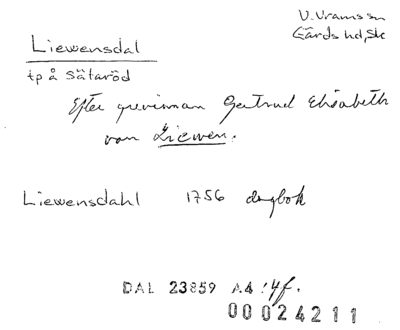 V. Vram ssn
Gärds hd, Sk
Liewensdal
tp å Sätaröd
Efter grevinnan Gertrud Elisabeth
von Liewen.
Liewensdahl 1756 dagbok
DAL 23859 A4:4f.
00024211